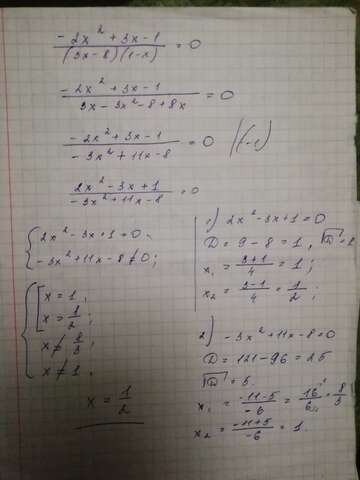 (-2x² + 3x - 1)/((3x-8)(1-x)) = 0
(-2x² + 3x - 1)/(3x - 3x² - 8 + 8x) = 0
(-2x² + 3x - 1)/(-3x² + 11x - 8) = 0 |(·(-1)
(2x² - 3x + 1)/(-3x² + 11x - 8) = 0
{ 2x² - 3x + 1 = 0
-3x² + 11x - 8 ≠ 0;
{ [ x = 1,
x = 1/2;
x ≠ 8/3;
x ≠ 1,
x = 1/2
1) 2x² - 3x + 1 = 0
D = 9 - 8 = 1, √D = 1
x₁ = (3+1)/4 = 1;
x₂ = (3-1)/4 = 1/2;
2) -3x² + 11x - 8 = 0
D = 121 - 96 = 25
√D = 5.
x₁ = (-11-5)/-6 = 16/6 = 8/3
x₂ = (-11+5)/-6 = 1.